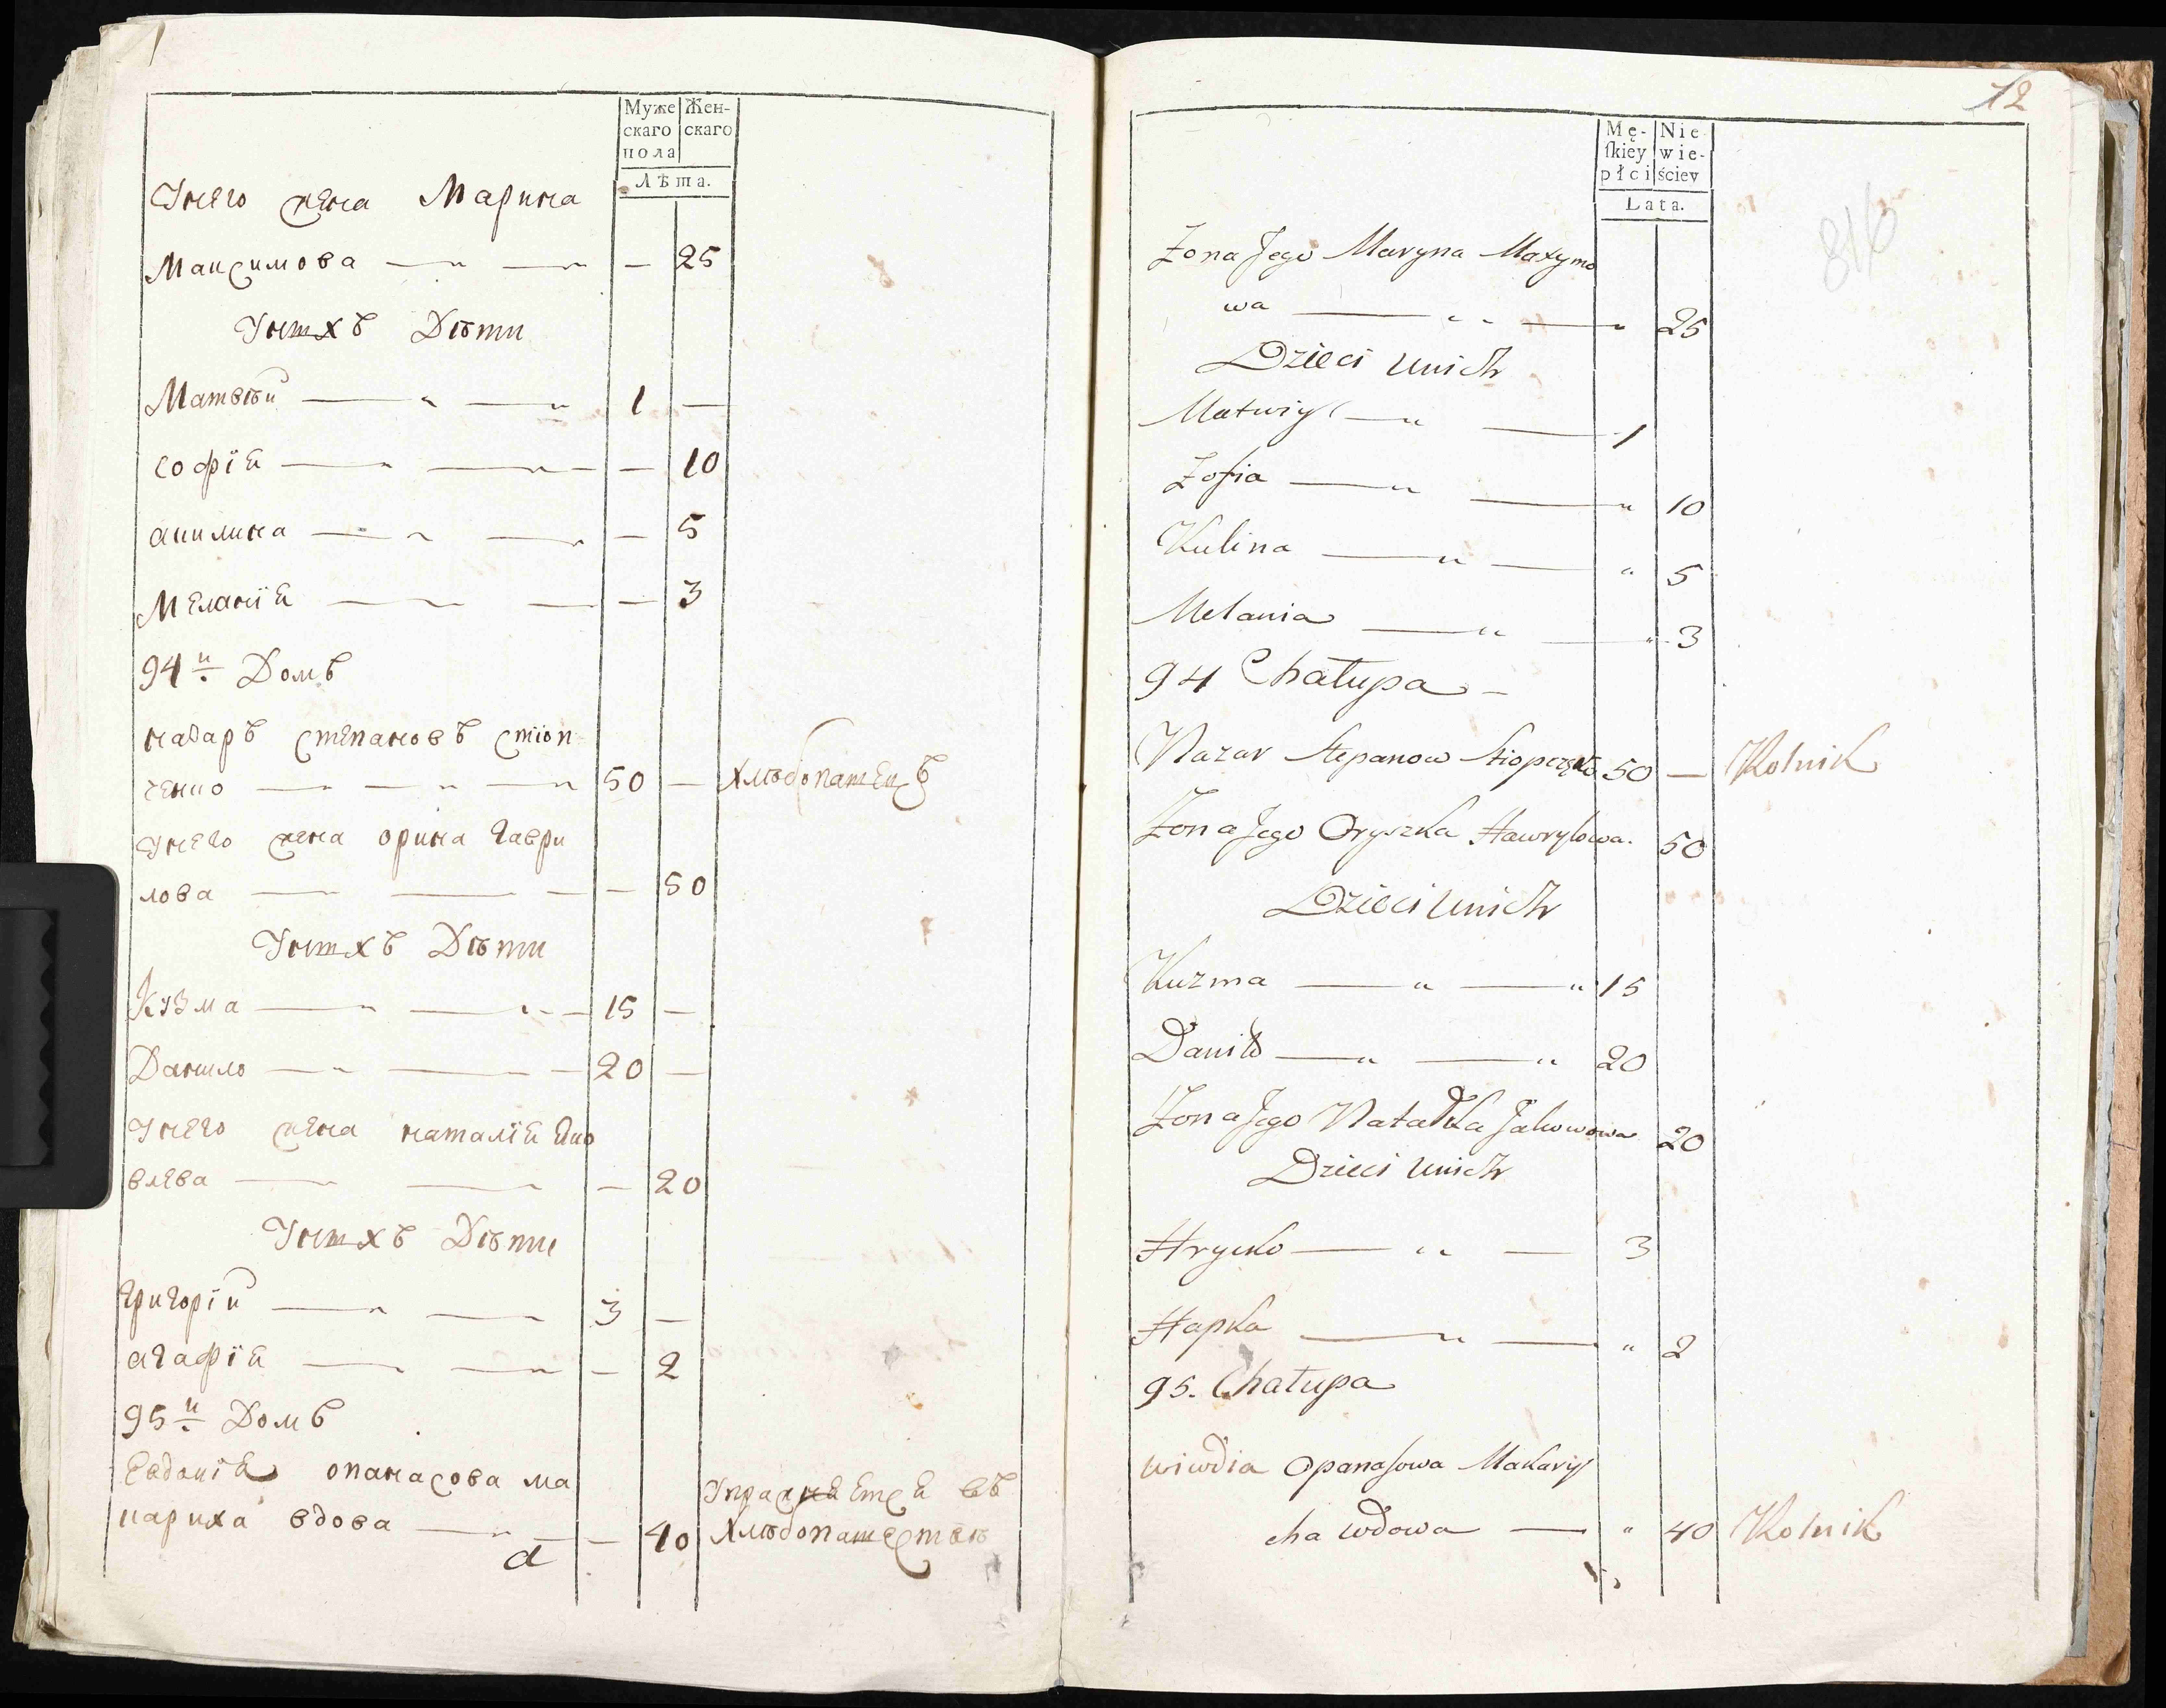 Муже Жен-
скаго скаго
пола
Лѣта.
Унего жена Марина
Максимова — — — 25
Унихъ Дѣти
Матвѣй — — 1 —
софія — — — 10
акилина — — — 5
Меланія — — — 3
94й Домъ
назаръ степановъ стіоп
ченко — — — 50 — хлѣбопашецъ
Унего жена орина гаври
лова — — — 50
Унихъ Дѣти
Кузма — — 15 —
Данило — — 20 —
Унего жена наталія яко
влева — — — 20
Унихъ Дѣти
григорій — — 3 —
агафія — — — 2
95й Домъ
Евдокія опанасова ма
кариха вдова — — — 40 Упражняется въ хлѣбопашествѣ
12
816
Mę- Nie
ſkiey wie-
płci ściey
Lata.
Żona Jego Maryna Maxymo
wa — „ — „ 25
Dzieci unich
Matwiy — „ — 1
Zofia — „ — „ 10
Kulina — „ — „ 5
Melania — „ — „ 3
94 Chałupa —
Nazar Stepanow Stiopczęko 50 — Rolnik
Żona Jego Oryszka Hawryłowa. 50
Dzieci unich
Kuzma — „ — „ 15
Daniło — „ — „ 20
Żona Jego Natałka Jakowowa 20
Dzieci unich
Hrycko — „ — 3
Hapka — „ — „ 2
95. Chałupa
Wiwdia Opanaſowa Makary
cha wdowa — „ 40 Rolnik